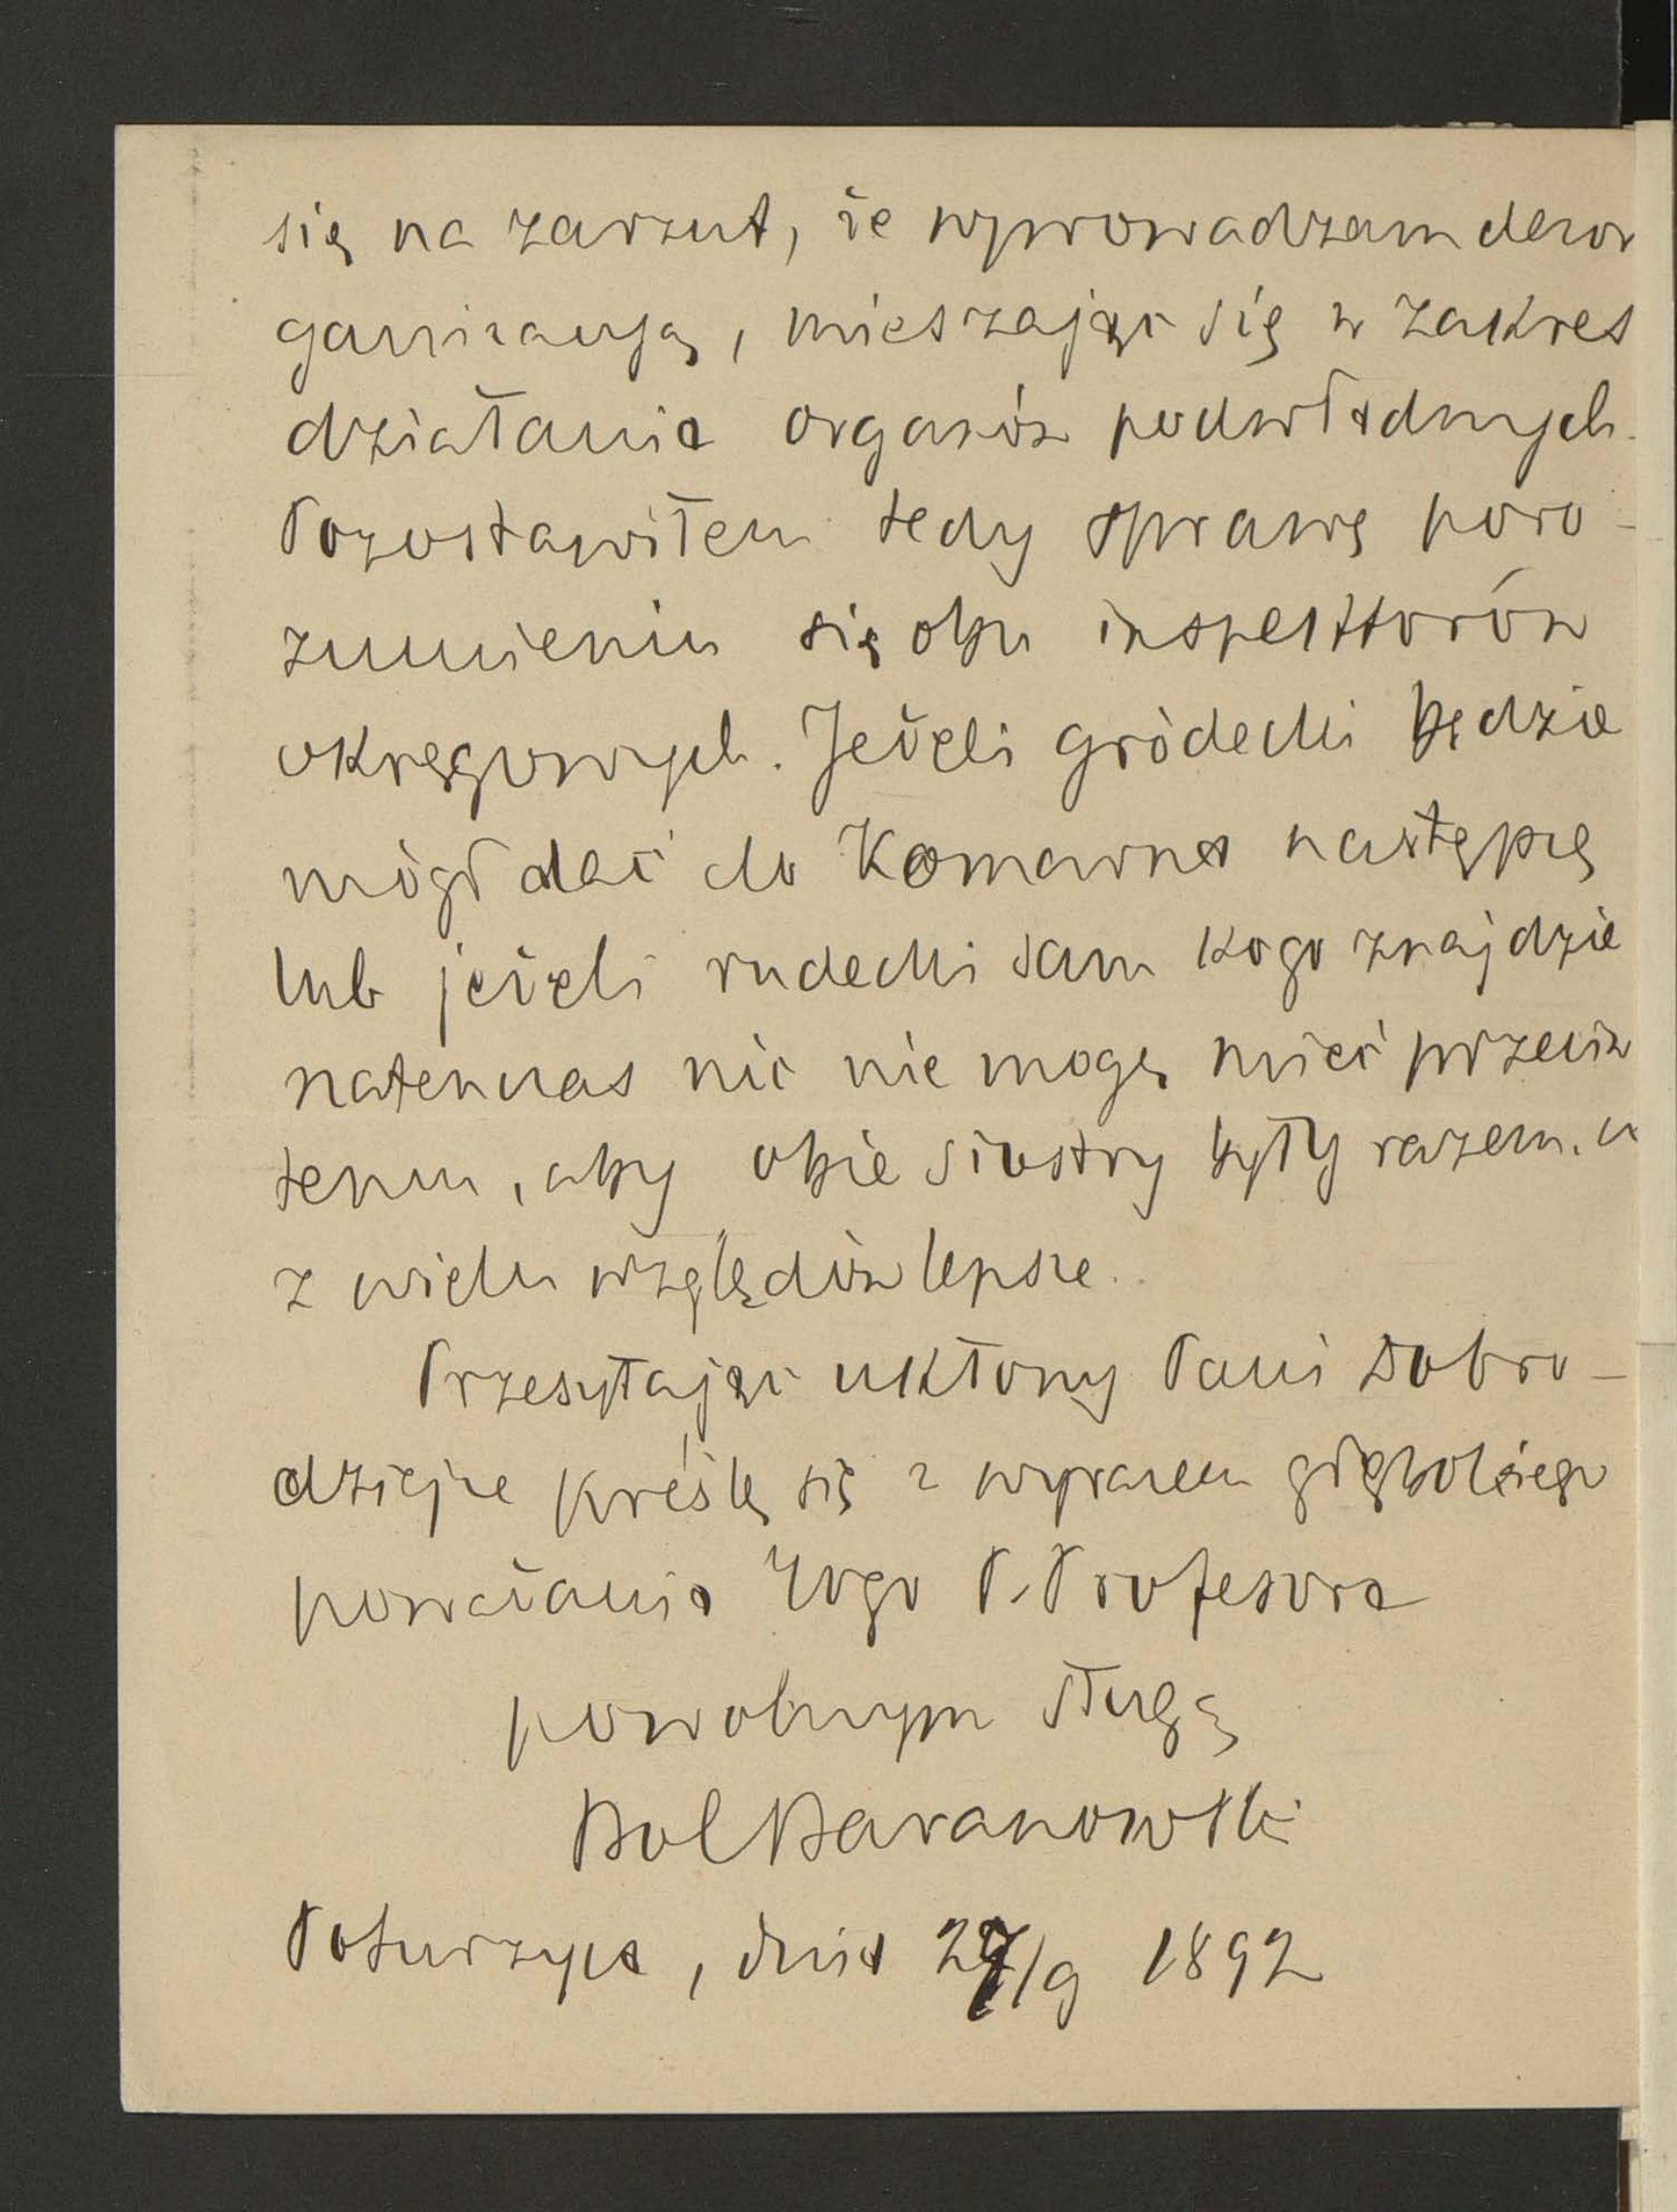 się na zarzut, że wprowadzam dezor
ganizacyą, mieszając się w zakres
działania organów podwładnych.
Pozostawiłem tedy sprawę poro-
zumieniu się obu inspektorów
okręgowych. Jeżeli gródecki będzie
mógł dać do Komarna następcę
lub jeżeli rudecki sam kogo znajdzie
natenczas nic nie mogę mieć przeciw
temu, aby obie siostry były razem.
z wielu względów lepsze.
Przesyłając ukłony Pani Dobro-
dziejce kreślę się z wyrazem głębokiego
poważania Wgo P. Profesora
powolnym sługą
Bol Baranowski
Poturzyca, dnia 27/9 1892